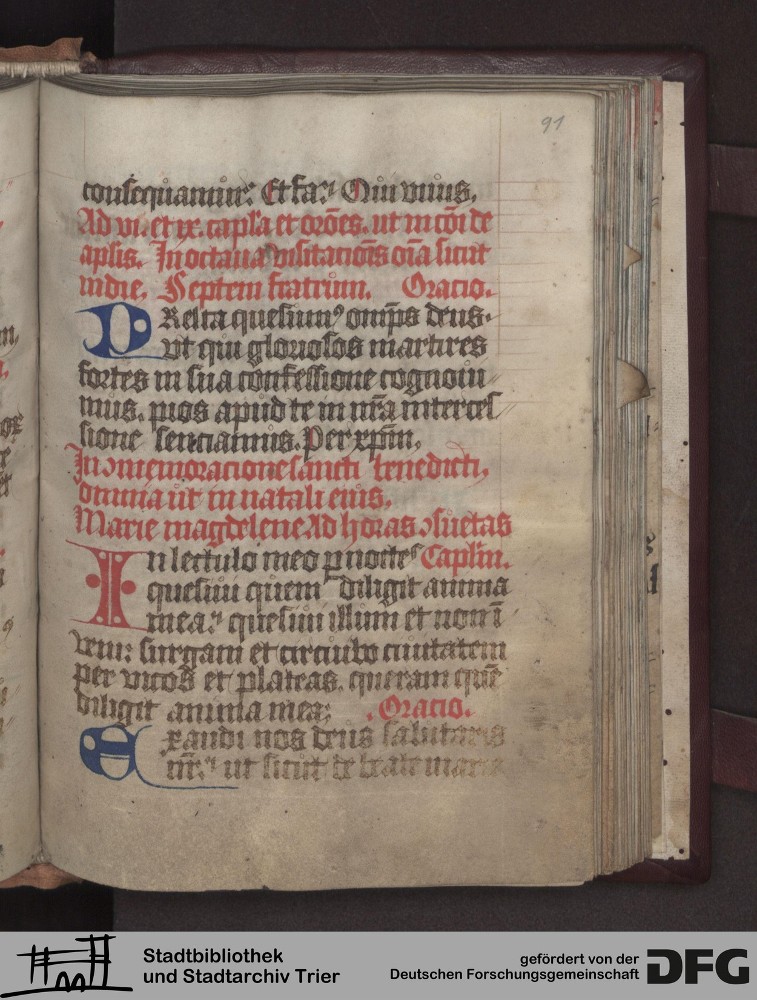 91
consequamur. Et fa. Qui vivis.
Ad vi. et ix. capl'a et orōes. ut in cōi de
aplis. In octaua visitatiōis oīa sicut
in die. Septem fratrum. Oratio.
PResta quesumus omps deus.
vt qui gloriosos martires
fortes in sua confessione cognoui
mus. pios apud te in nrā interces
sione senciamus. Per xpm.
In ɔmemoracione sancti benedicti.
omnia ut in natali eius.
Marie magdelene Ad horas ɔsuetas
In lectulo meo p noctes Caplm.
quesiui quem diligit anima
mea. quesiui illum et non ī
veni: surgam et circuibo ciuitatem
per vicos et plateas. queram quē
diligit anima mea: Oratio.
Exaudi nos deus salutaris
nr. ut sicut de beate marie
Stadtbibliothek
und Stadtarchiv Trier
gefördert von der
Deutschen Forschungsgemeinschaft
DFG